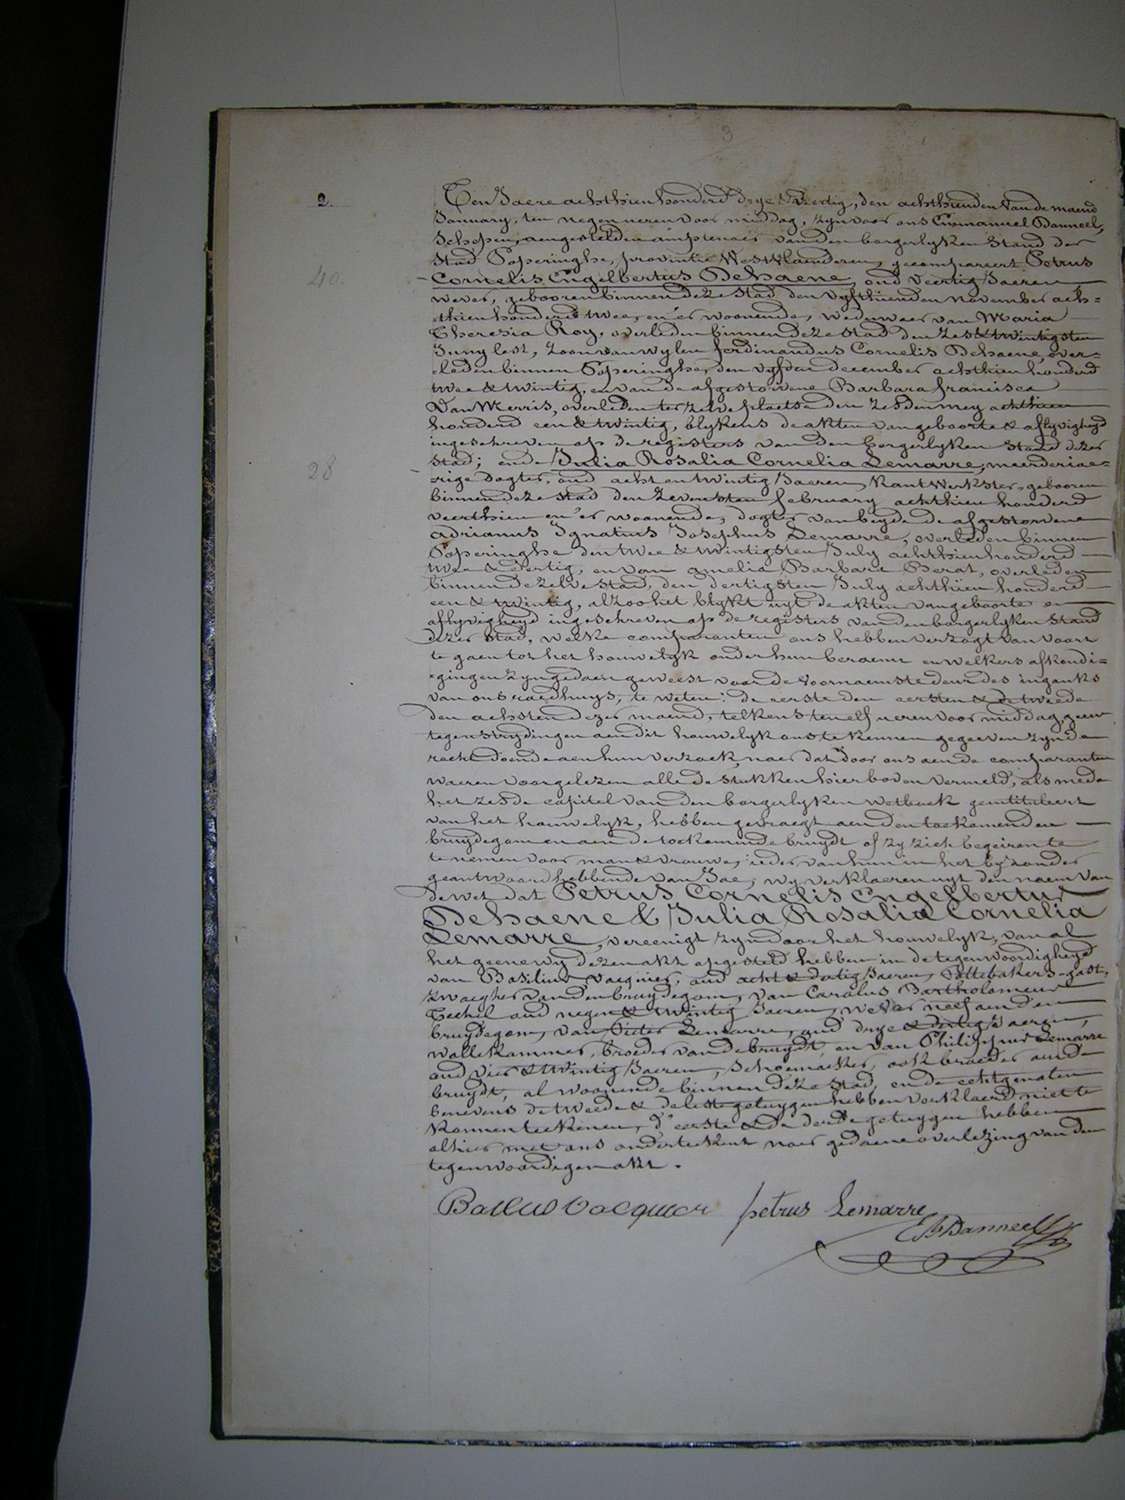 3
2.
Ten Jaere achthien honderd drye & veertig, den achthienden van de maend
January, ten negen ueren voor middag, zyn voor ons Emmanuel Danneel,
Schepen, aengestelden amptenaer van den borgerlyken Stand der
Stad Poperinghe, provintie Westvlaenderen, gecompareert Petrus
40.
Cornelis Engelbertus Dehaene, oud veertig Jaeren,
wever, gebooren binnen deze Stad den vyfthienden november ach-
thien honderd twee, en er woonende, weduwaer van Maria
Theresia Roy, overleden binnen deze Stad den zes & twintigsten
Juny lest, zoon van wylen Ferdinandus Cornelis Dehaene, over-
leden binnen Poperinghe, den vyfden december achthien honderd
twee & twintig, en van de afgestorvene Barbara Francisca
Van Merris, overleden ter zelve plaetse den zesden mey achthien
honderd een & twintig, blykens de akten van geboorte & aflyvigheyd
ingeschreven op de registers van den borgerlyken Stand dezer
28
Stad; ende Julia Rosalia Cornelia Lemarre, meerderjae-
rige dogter, oud acht en twintig Jaeren, Kantwerkster, gebooren
binnen deze Stad den zevensten february achthien honderd
veerthien en er woonende, dogter van beyde de afgestorvene
Adrianus Ignatius Josephus Lemarre, overleden binnen
Poperinghe den twee & twintigsten July achthien honderd
twee & dertig, en van Amelia Barbara Berat, overleden
binnen dezelve Stad, den dertigsten July achthien honderd
een & twintig, alzoo het blykt uyt de akten van geboorte en
aflyvigheyd ingeschreven op de registers van den borgerlyken Stand
dezer Stad, welke comparanten ons hebben verzogt van voort
te gaen tot het houwelyk onder hun beraemt en welkers afkondi-
gingen zyn gedaen geweest voor de voornaemste deur des ingangs
van ons raedhuys, te weten: de eerste den eersten & de tweede
den achsten dezer maend, telkens ten elf ueren voor middag, geene
tegenstrydingen aen dit houwelyk ons te kennen gegeven zynde
recht doende aen hun verzoek, naer dat door ons aen de comparanten
waeren voorgelezen alle de stukken hier boven vermeld, als mede
het zesde capitel van den borgerlyken wetboek geintituleert
van het houwelyk, hebben gevraegt aen den toekomenden
bruydegom en aen de toekomende bruydt of zy zich begeiren te
te nemen voor man & vrouwe; ieder van hun in het byzonder
geantwoord hebbende van Jae, wy verklaeren uyt den naem van
de wet dat Petrus Cornelis Engelbertus
Dehaene & Julia Rosalia Cornelia
Lemarre, vereenigt zyn door het houwelyk, van al
het geene wy dezen akt opgesteld hebben in de tegenwoordigheyd
van Basilius Vacquier, oud acht & dertig Jaeren, Pottebakers-gast,
zwaeger van den bruydegom, van Carolus Bartholomeus
Techel oud negen & twintig Jaeren, wever neef aen den
bruydegom, van Pieter Lemarre, oud drye & dertig Jaeren,
wollekammer, broeder van de bruydt, en van Philippus Lemarre
oud vier & twintig Jaeren, Schoenmaeker, ook broeder aen de
bruydt, al woonende binnen deze Stad, en de echtgenoten
benevens de tweede & de leste getuygen hebben verklaerd niet te
konnen teekenen, d'eerste & de derde getuygen hebben
alhier met ons onderteekent naer gedaene overlezing van den
tegenwoordigen akt.
Petrus Lemarre
E. Danneel